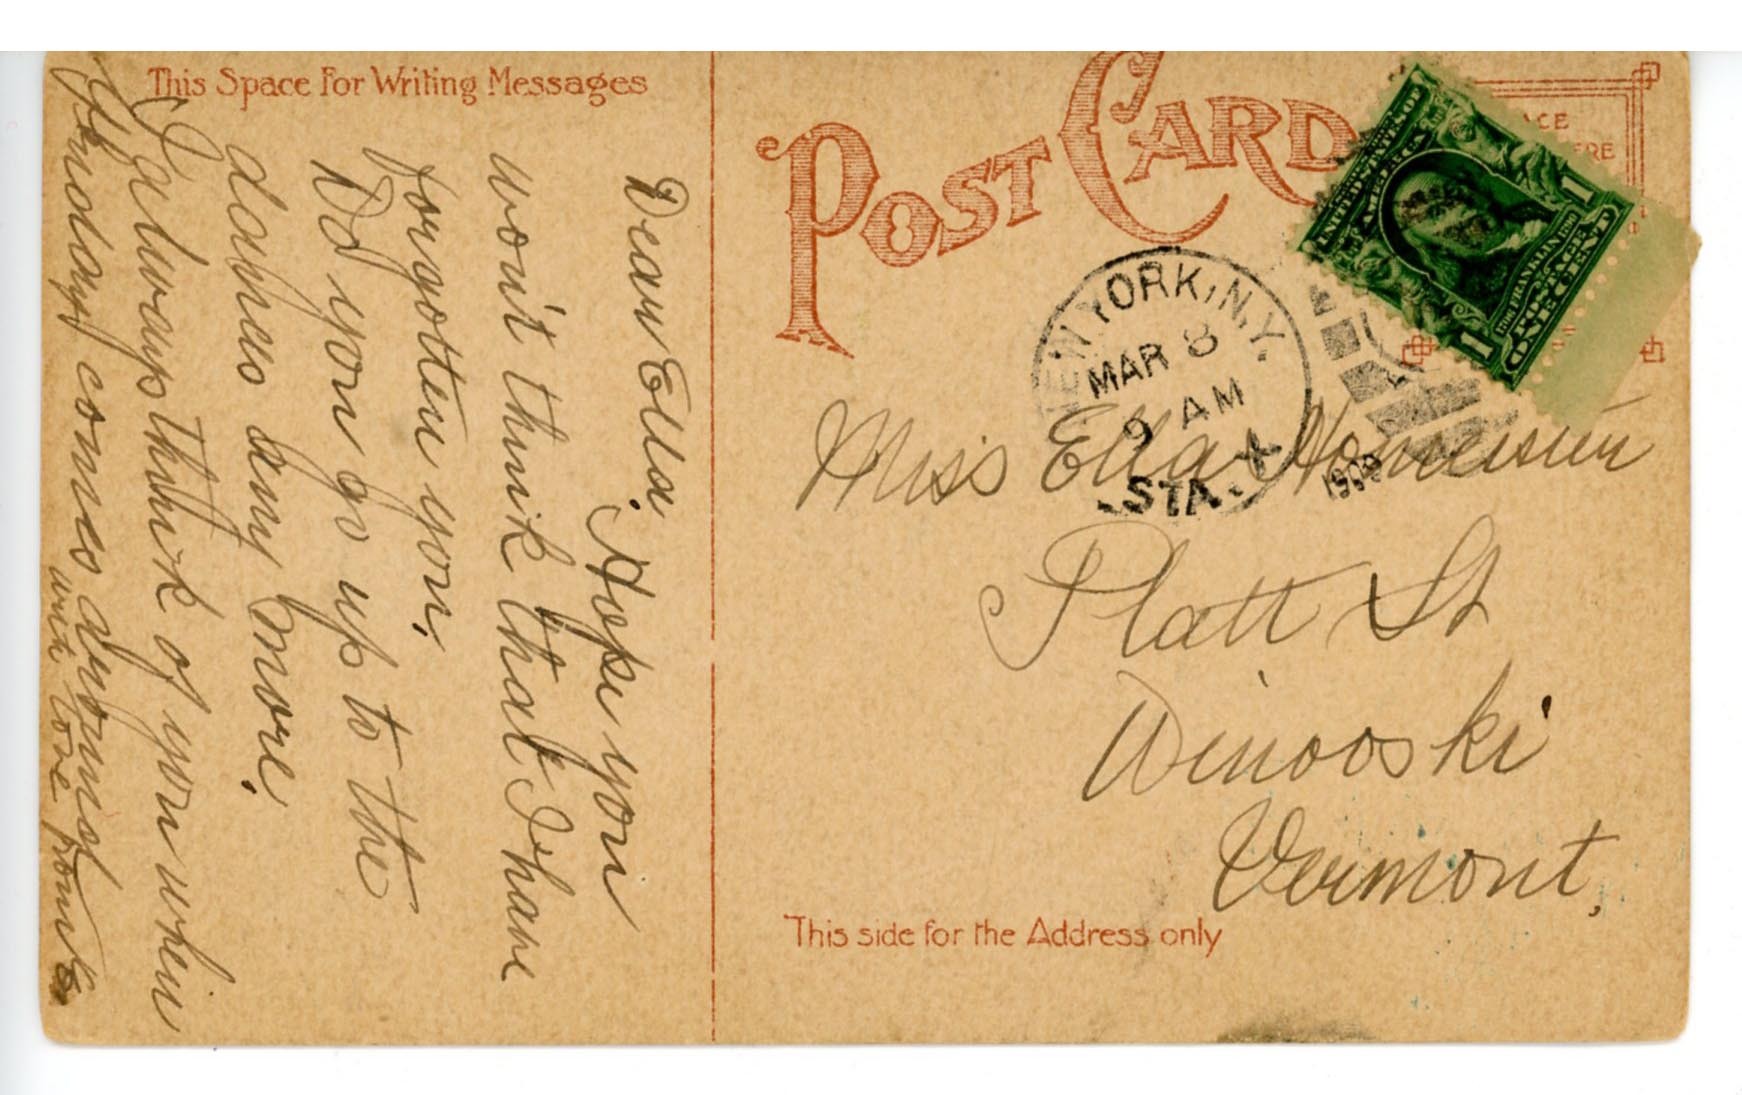 This Space For Writing Messages
Dear Ella.
Hope you
won't think that I have
forgotten you.
Do you go up to the
dances any more.
I always think of you when
Sunday comes around
with love from
POST CARD
ACE
ERE
UNITED STATES OF
AMERICA
1706 FRANKLIN 1790
POSTAGE
ONE CENT
1
1
NEW YORK, N.Y.
MAR 8
9 AM
STA. X
Miss Ella
Platt St
Winooski
Vermont,
This side for the Address only